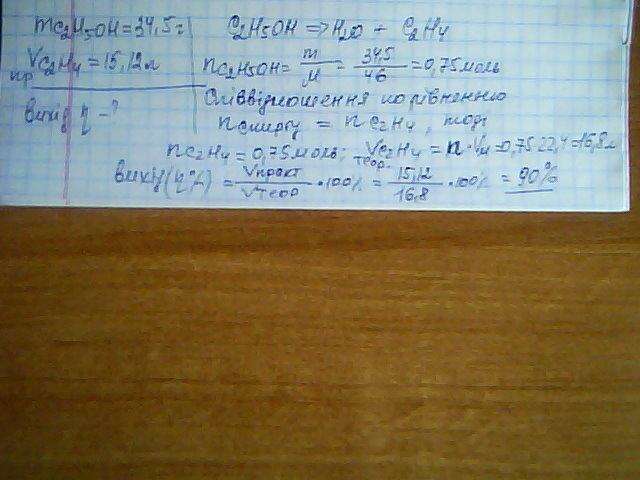 mC₂H₅OH = 34,5 г
VC₂H₄ = 15,12 л
пр
вихід η - ?
C₂H₅OH => H₂O + C₂H₄
nC₂H₅OH = m/M = 34,5/46 = 0,75 моль
Співвідношення по рівнянню
nспирту = nC₂H₄, тоді
nC₂H₄ = 0,75 моль; Vтеор. C₂H₄ = n·Vм = 0,75·22,4 = 16,8 л
вихід (η%) = Vпракт/Vтеор · 100% = 15,12/16,8 · 100% = 90%